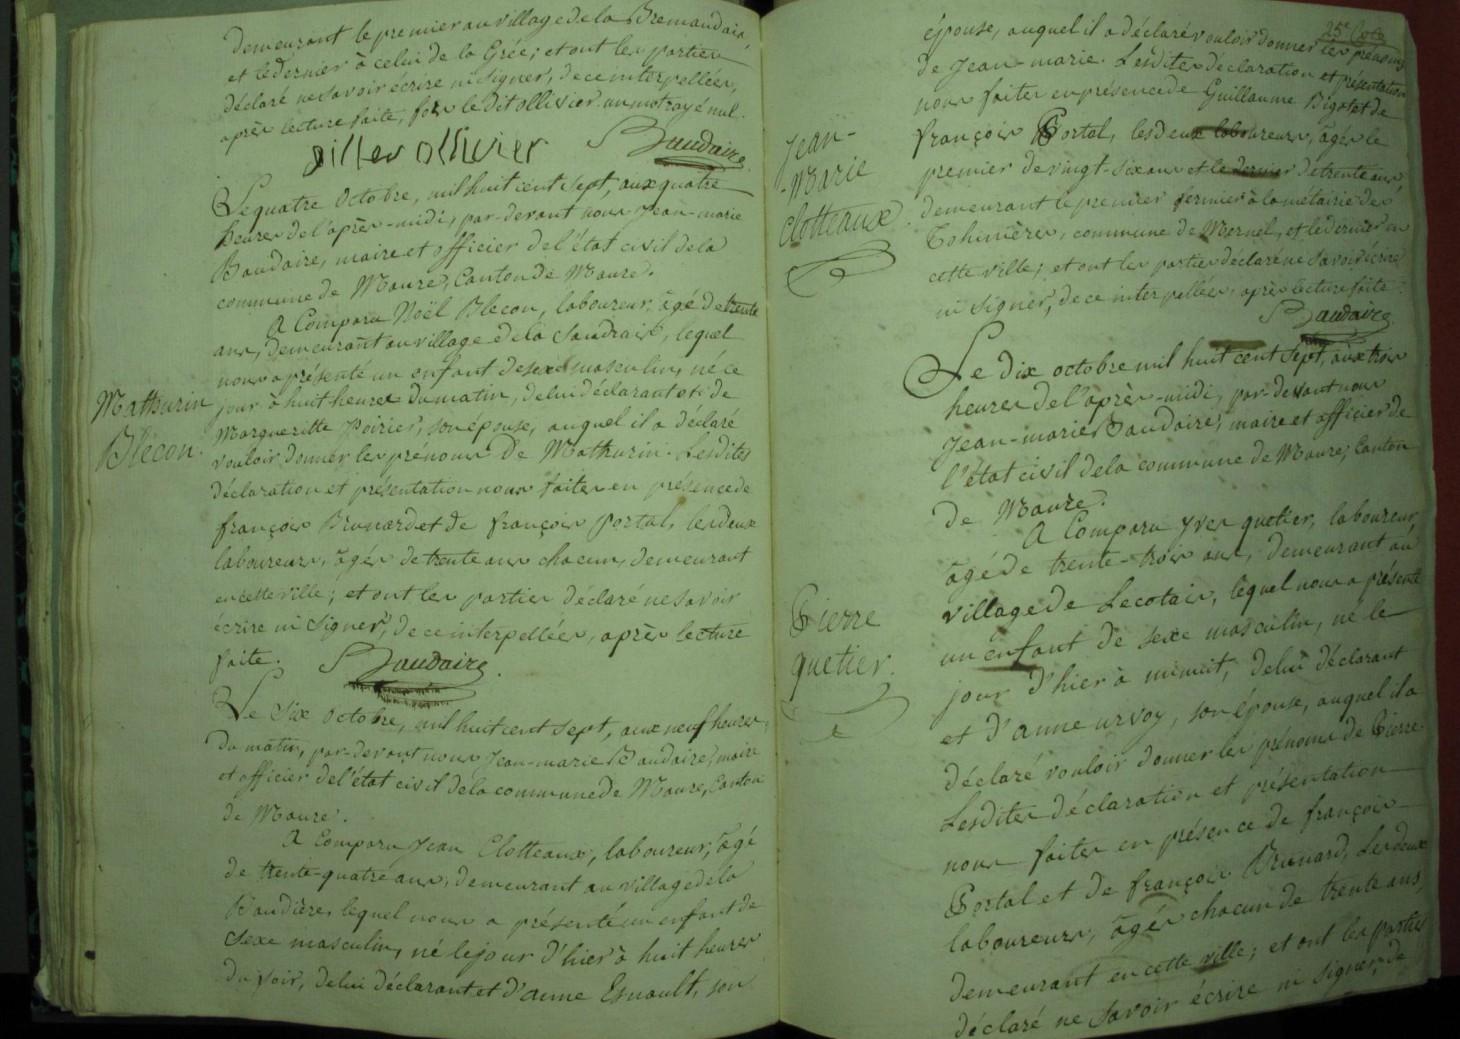 demeurant le premier au village de la Bremaudais,
et le dernier à celui de la Grée; et ont les parties
déclaré ne savoir écrire ni signer, de ce interpellées,
après lecture faite, fors le dit ollivier. un mot rayé nul.
gilles ollivier Baudaire
Le quatre Octobre, mil huit cent sept, aux quatre
heures de l'après-midi, par-devant nous Jean-marie
Baudaire, maire et officier de l'état civil de la
commune de Maure, Canton de Maure.
A Comparu Noël Blécon, laboureur, âgé de trente
ans, demeurant au village de la Saudrais, lequel
nous a présenté un enfant de sexe masculin, né ce
jour à huit heures du matin, de lui déclarant et de
Margueritte Poirier, son épouse, auquel il a déclaré
vouloir donner les prénoms de Mathurin. Lesdites
déclaration et présentation nous faites en présence de
françois Brunard et de françois Portal, les deux
laboureurs, âgés de trente ans chacun, demeurant
en cette ville; et ont les parties déclaré ne savoir
écrire ni signer, de ce interpellées, après lecture
faite. Baudaire
Mathurin
Blécon.
Le Six Octobre, mil huit cent sept, aux neuf heures
du matin, par-devant nous Jean-marie Baudaire, maire
et officier de l'état civil de la commune de Maure, Canton
de Maure.
A Comparu Jean Clotteaux, laboureur, âgé
de trente-quatre ans, demeurant au village de la
Baudière, lequel nous a présenté un enfant de
sexe masculin, né le jour d'hier à huit heures
du soir, de lui déclarant et d'anne Esnault, son
25e Cote
épouse, auquel il a déclaré vouloir donner les prénoms
de Jean-marie. Lesdites déclaration et présentation
nous faites en présence de Guillaume Bigot et de
françois Portal, les deux laboureurs, âgés le
premier de vingt-six ans et le dernier de trente ans,
demeurant le premier fermier à la métairie des
commune de Mernel, et le dernier en
cette ville; et ont les parties déclaré ne savoir écrire
ni signer, de ce interpellées, après lecture faite.
Baudaire
Jean-
-Marie
Clotteaux.
Le dix octobre mil huit cent sept, aux trois
heures de l'après-midi, par-devant nous
Jean-marie Baudaire, maire et officier de
l'état civil de la commune de Maure, Canton
de Maure.
A Comparu Yves quetier, laboureur,
âgé de trente-trois ans, demeurant au
village de Lecotais, lequel nous a présenté
un enfant de sexe masculin, né le
jour d'hier à minuit, de lui déclarant
et d'anne urvoy, son épouse, auquel il a
déclaré vouloir donner les prénoms de Pierre.
Lesdites déclaration et présentation
nous faites en présence de françois
Portal et de françois Brunard, les deux
laboureurs, âgés chacun de trente ans,
demeurant en cette ville; et ont les parties
déclaré ne savoir écrire ni signer, de
Pierre
quetier.